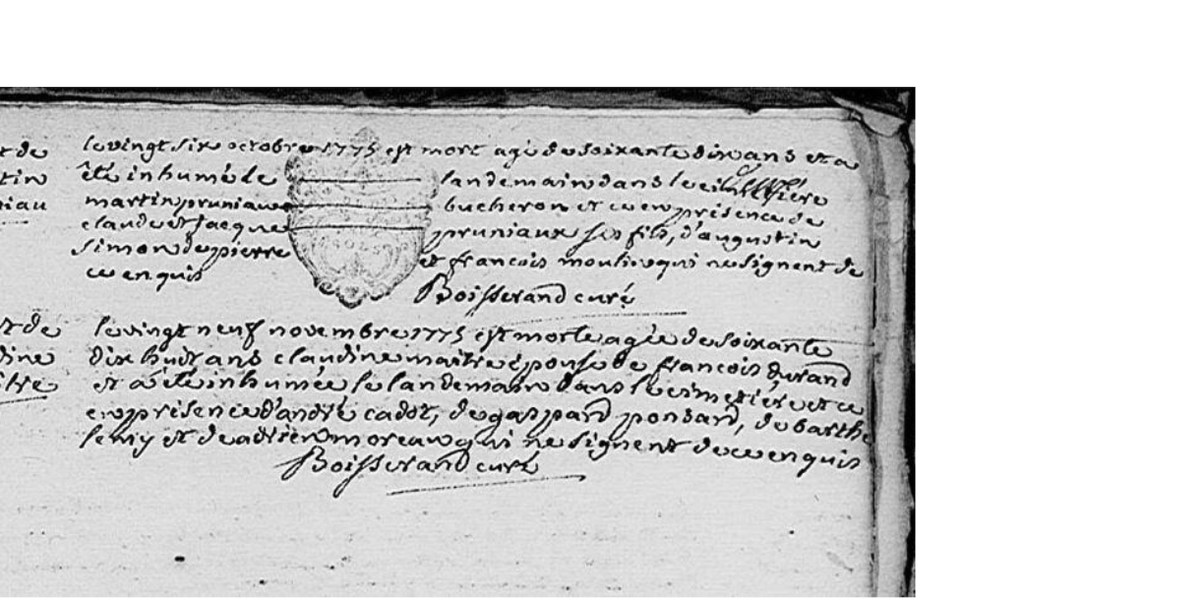 t de
tin
niau
le vingt six octobre 1775 est mort agé de soixante dix ans et a
été inhumé le landemain dans le cimetière
martin pruniaux bucheron et ce en présence de
claude et jacque pruniaux ses fils, d'augustin
simon de pierre et francois moulin qui ne signent de
ce enquis
Boisserand curé
t de
dine
itre
le vingt neuf novembre 1775 est morte agée de soixante
dix huit ans claudine maitre épouse de francois durand
et a été inhumée le landemain dans le cimetière et ce
en présence d'andré cadot, de gaspard ponsard, de barthe
lemy et de adrien moreau qui ne signent de ce enquis
Boisserand curé